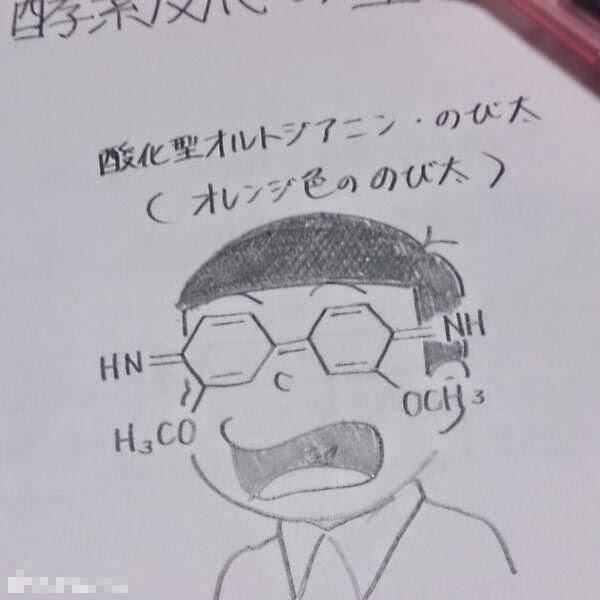 酸化型オルトジアニジン・のび太
(オレンジ色ののび太)
HN
NH
C
OCH3
H3CO